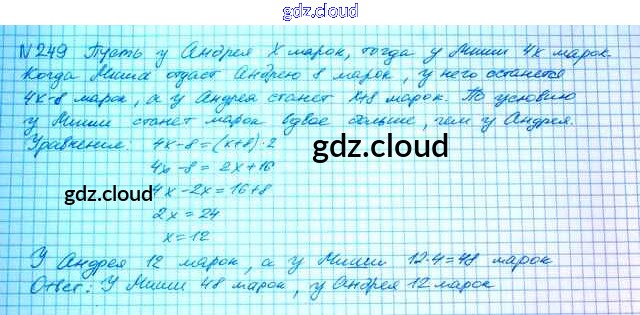 gdz.cloud
№249 Пусть у Андрея х марок, тогда у Миши 4х марок.
Когда Миша отдаст Андрею 8 марок, у него останется
4х-8 марок, а у Андрея станет х+8 марок. По условию
у Миши станет марок вдвое больше, чем у Андрея.
Уравнение: 4х-8=(х+8)·2
gdz.cloud
4х-8=2х+16
gdz.cloud
4х-2х=16+8
2х=24
х=12
У Андрея 12 марок, а у Миши 12·4=48 марок
Ответ: У Миши 48 марок, у Андрея 12 марок
gdz.cloud